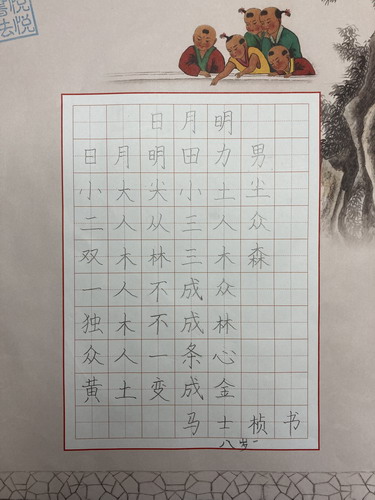 悦悦
書法
日月明
日月明田力男
小大尖小土尘
二人从三人众
双木林三木森
一人不成众
独木不成林
众人一条心
黄土变成金
马士桢书
八岁